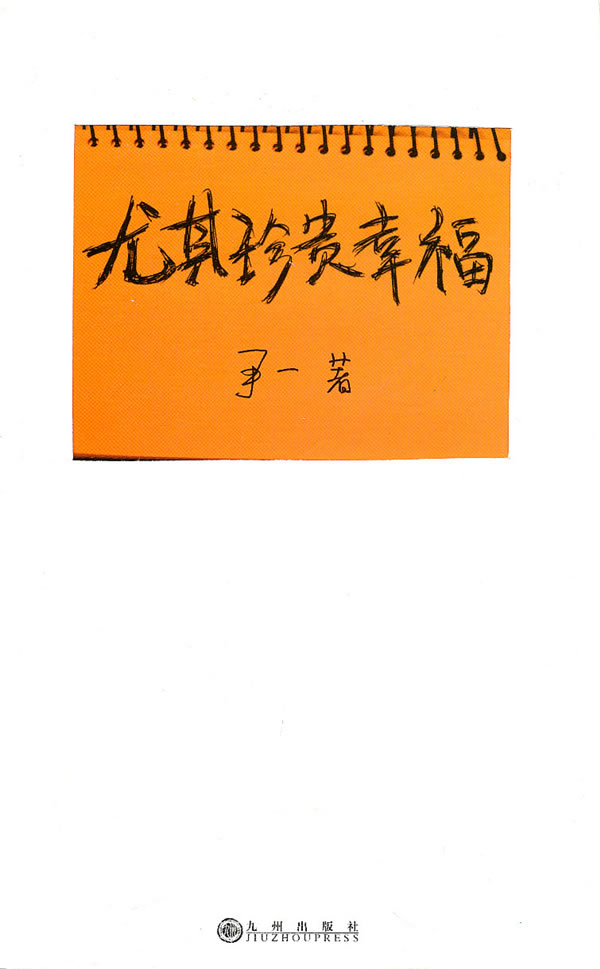 尤其珍贵幸福
争一 著
九州出版社
JIUZHOUPRESS